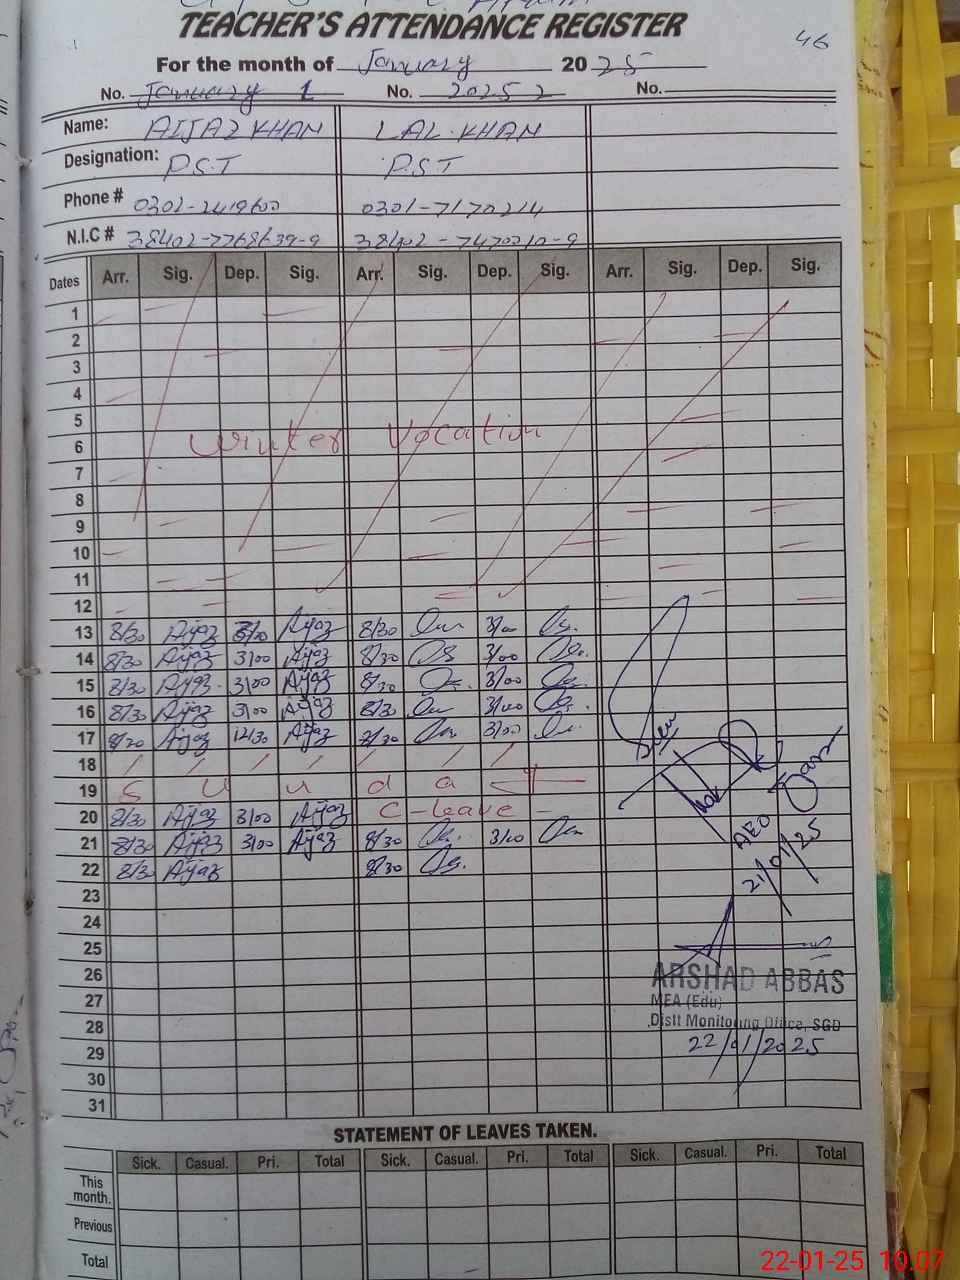 TEACHER'S ATTENDANCE REGISTER
46
For the month of January 2025
No. January 1 No. 2025 2 No.
Name: AIJAZ KHAN LAL KHAN
Designation: P.S.T P.S.T
Phone # 0301-2419600 0301-7170214
N.I.C # 38402-7768639-9 38402-7470210-9
Dates Arr. Sig. Dep. Sig. Arr. Sig. Dep. Sig. Arr. Sig. Dep. Sig.
1
2
3
4
5
6 Winter Vocation
7
8
9
10
11
12
13 8/30 Aijaz 3/00 Aijaz 8/30 3/00
14 8/30 Aijaz 3/00 Aijaz 8/30 3/00
15 8/30 Aijaz 3/00 Aijaz 8/30 3/00
16 8/30 Aijaz 3/00 Aijaz 8/30 3/00
17 8/30 Aijaz 12/30 Aijaz 8/30 3/00
18
19 S u n d a y
20 8/30 Aijaz 3/00 Aijaz C-leave
21 8/30 Aijaz 3/00 Aijaz 8/30 3/00
22 8/30 Aijaz 8/30
AEO
21/01/25
23
24
25
26
27
28
29
30
31
ARSHAD ABBAS
MEA (Edu)
Distt Monitoring Office, SGD
22/01/2025
STATEMENT OF LEAVES TAKEN.
Sick. Casual. Pri. Total Sick. Casual. Pri. Total Sick. Casual. Pri. Total
This month.
Previous
Total
22-01-25 10.07